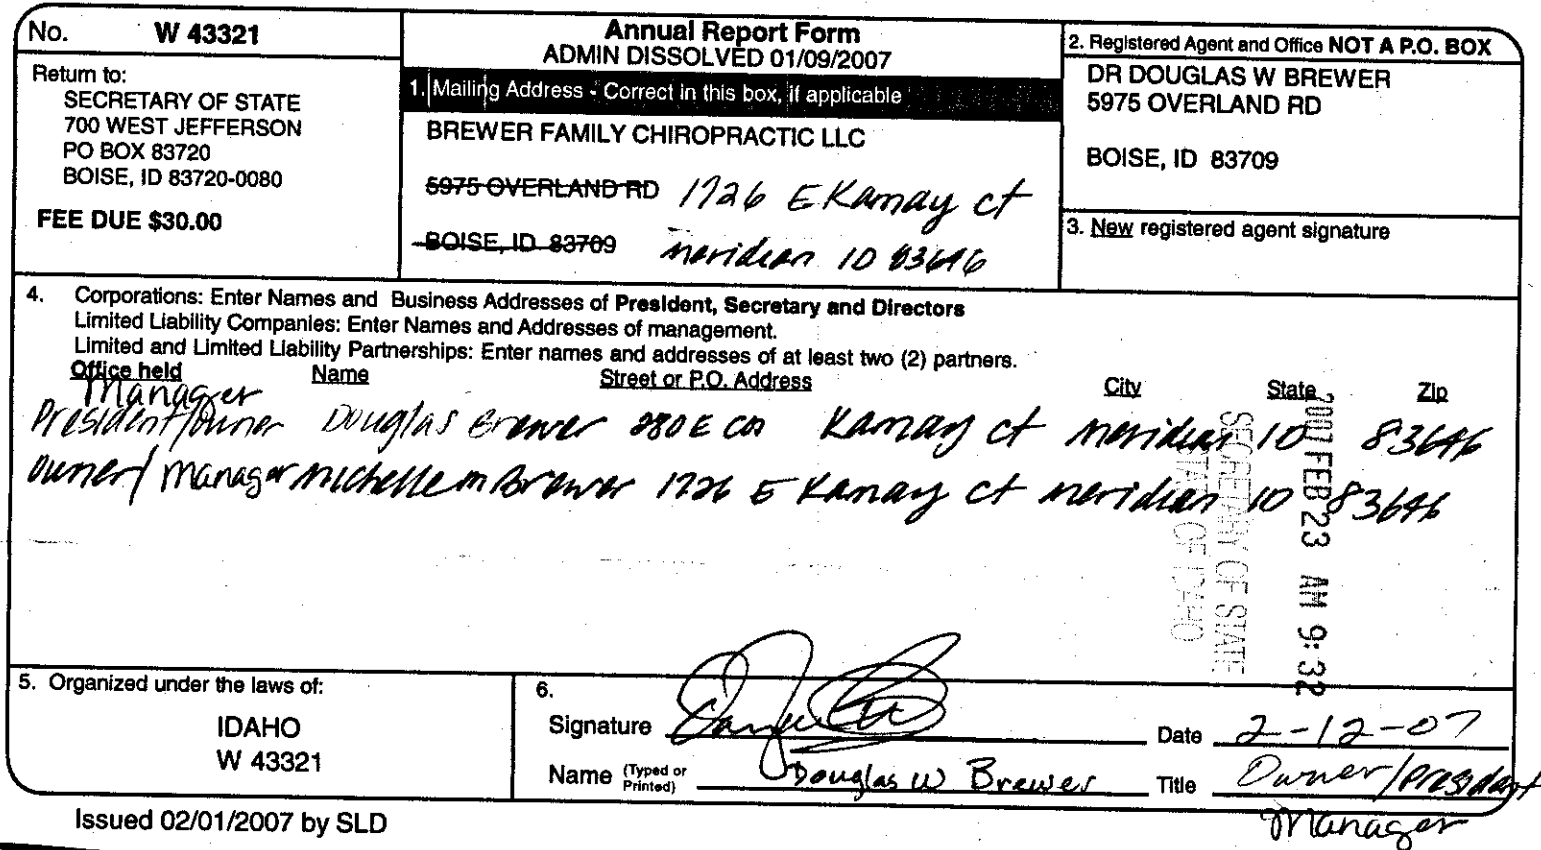 No. W 43321
Return to:
SECRETARY OF STATE
700 WEST JEFFERSON
PO BOX 83720
BOISE, ID 83720-0080
FEE DUE $30.00
Annual Report Form
ADMIN DISSOLVED 01/09/2007
1. Mailing Address - Correct in this box, if applicable
BREWER FAMILY CHIROPRACTIC LLC
5975 OVERLAND RD 1726 E Kamay ct
BOISE, ID 83709 meridian ID 83646
2. Registered Agent and Office NOT A P.O. BOX
DR DOUGLAS W BREWER
5975 OVERLAND RD
BOISE, ID 83709
3. New registered agent signature
4. Corporations: Enter Names and Business Addresses of President, Secretary and Directors
Limited Liability Companies: Enter Names and Addresses of management.
Limited and Limited Liability Partnerships: Enter names and addresses of at least two (2) partners.
Office held Name Street or P.O. Address City State Zip
Manager
President/owner Douglas Brewer Kamay ct meridian ID 83646
owner/Manager Michelle m Brewer 1726 E Kamay ct meridian ID 83646
2007 FEB 23 AM 9:32
SECRETARY OF STATE
STATE OF IDAHO
5. Organized under the laws of:
IDAHO
W 43321
6.
Signature Date 2-12-07
Name (Typed or Printed) Douglas W Brewer Title Owner/president
Manager
Issued 02/01/2007 by SLD